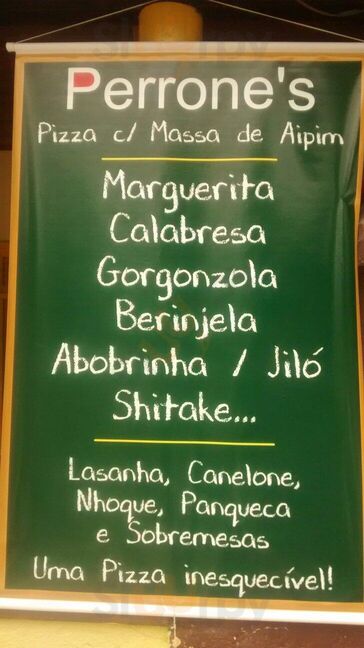 Perrone's
Pizza c/ Massa de Aipim
Marguerita
Calabresa
Gorgonzola
Berinjela
Abobrinha / Jiló
Shitake...
Lasanha, Canelone,
Nhoque, Panqueca
e Sobremesas
Uma Pizza inesquecível!